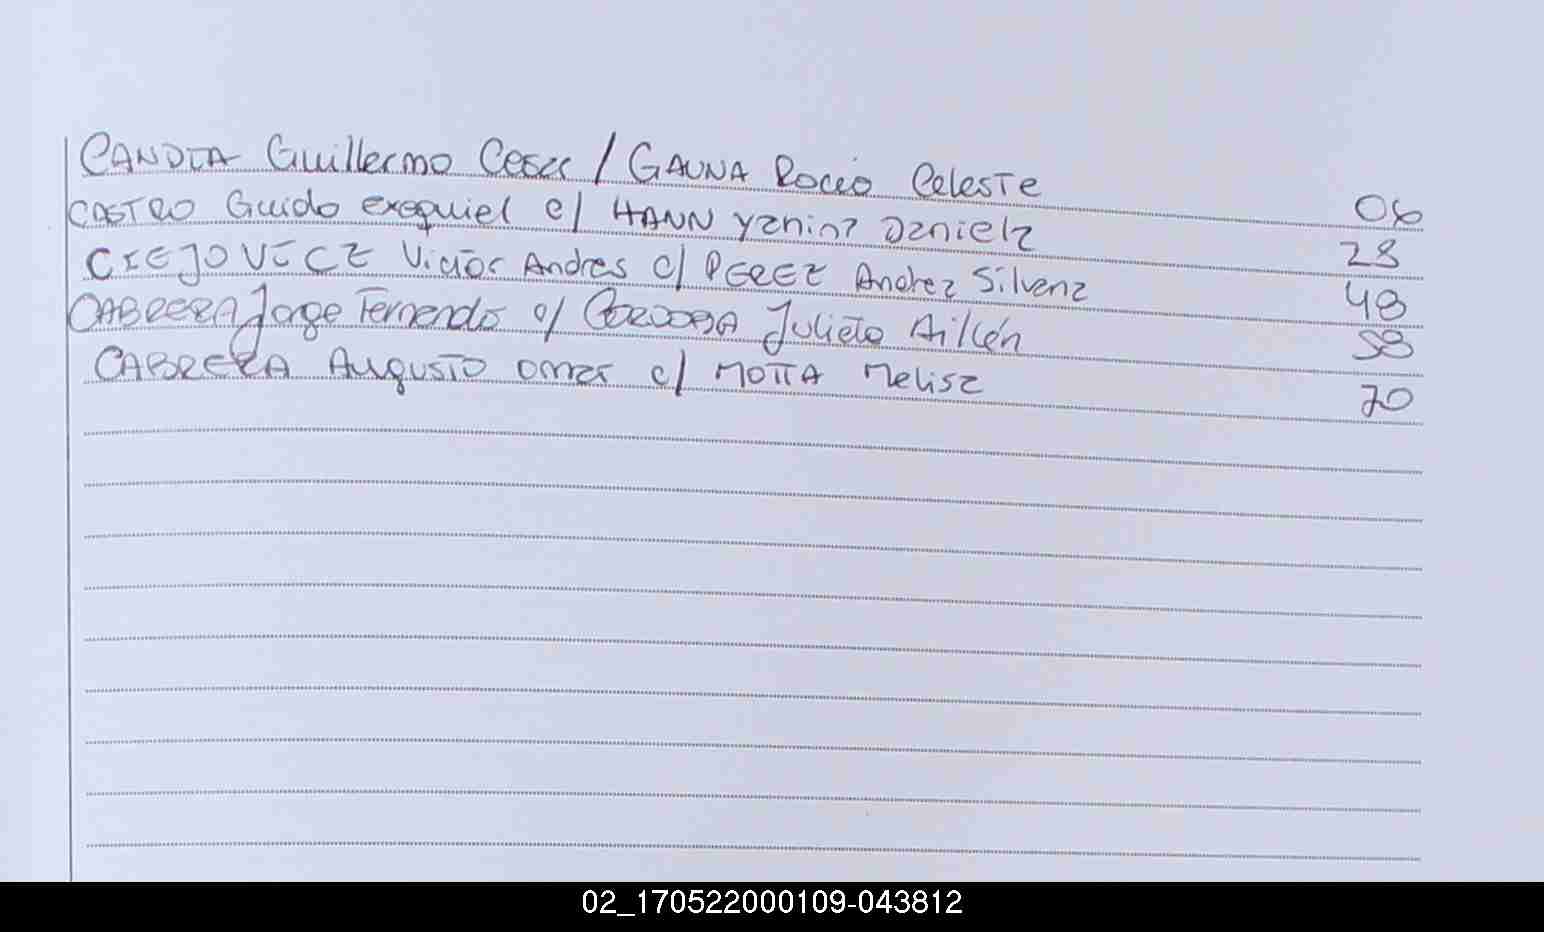 CANDIA Guillermo Cesar / GAUNA Rocio Celeste 06
CASTRO Guido exequiel c/ HANN Yanina Daniela 28
CIEJOVICZ Victor Andres c/ PEREZ Andrea Silvana 48
CABRERA Jorge Fernando c/ CORDOBA Julieta Ailén 58
CABRERA Augusto Omar c/ MOTTA Melisa 70
02_170522000109-043812